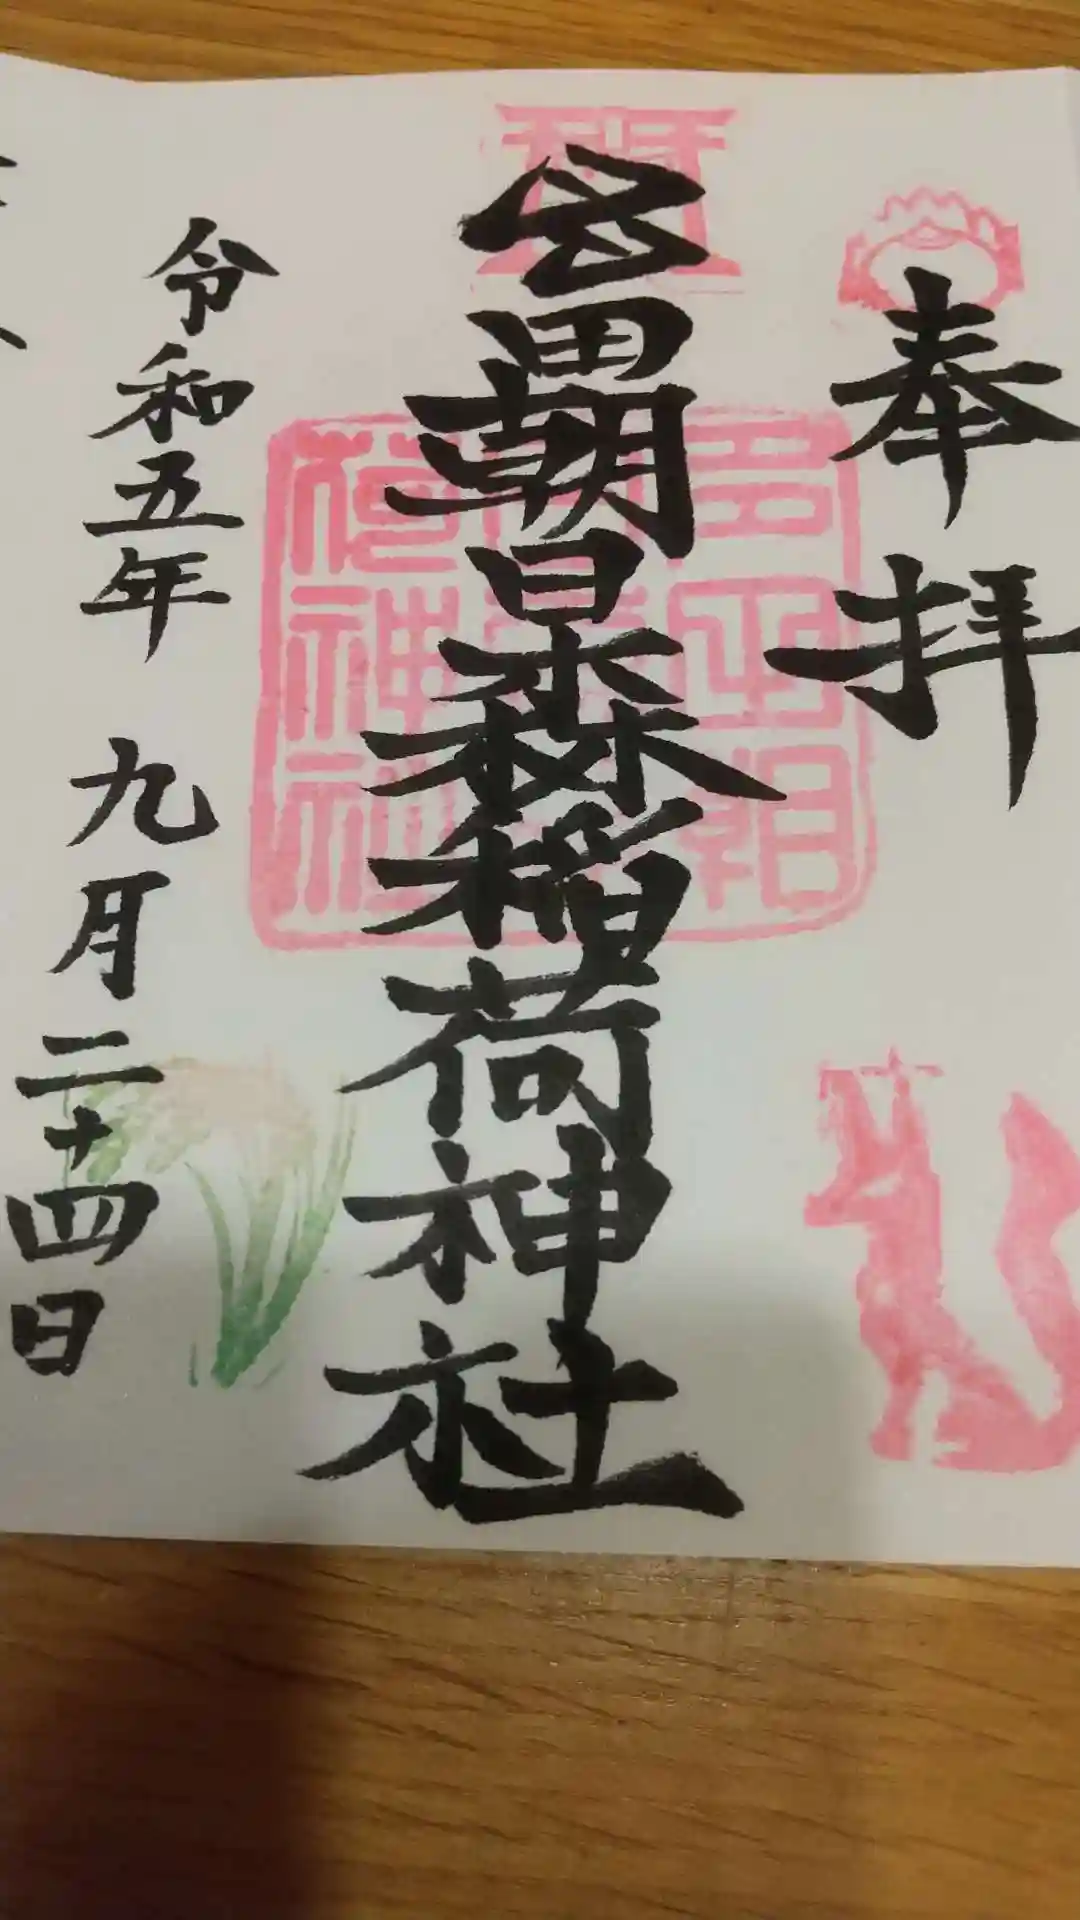 奉拝
多田朝日森稲荷神社
令和五年 九月二十四日
多田朝
荷神社